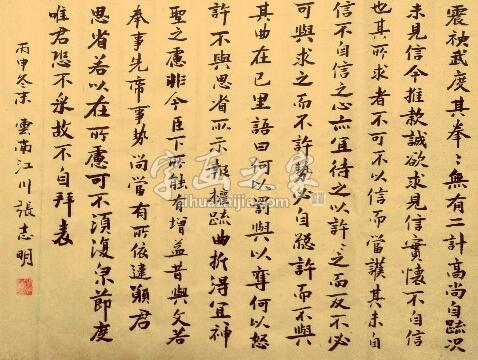 震神武度其拳〻無有二計高尚自疏況
未見信今推款誠欲求見信實懷不自信
也其所求者不可不以信而當護其未自
信不自信之心亦宜待之以許〻之而反不必
可與求之而不許勢必自絕許而不與
其曲在己里語曰何以罰與以奪何以怒
許不與思省所示報權疏曲折得宜神
聖之慮非今臣下所能有增益昔與文若
奉事先帝事勢尚當有所依違願君
思省若以在所慮可不須復貌節度
唯君恐不采故不自拜表
丙申冬末 雲南江川張志明
字画之家
zihuazhijia.com